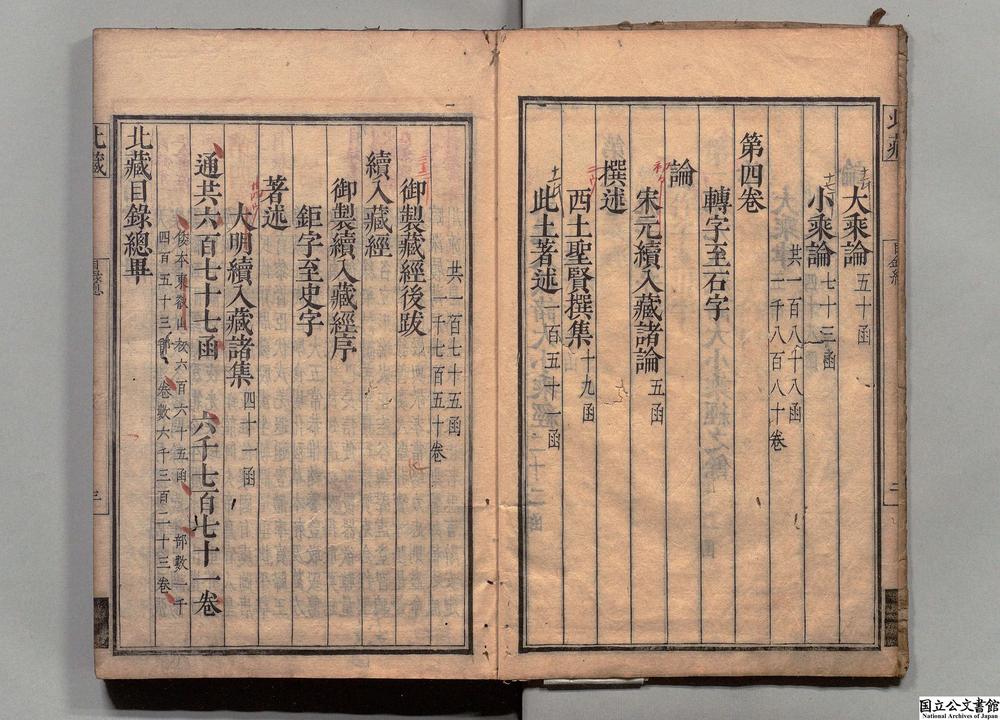 大乘論五十函
小乘論七十三函
共一百八十八函
一千八百八十卷
第四卷
轉字至石字
論
宋元續入藏諸論五函
撰述
西土聖賢撰集十九函
此土著述一百五十一函
共一百七十五函
一千七百五十卷
御製藏經後跋
續入藏經
御製續入藏經序
鉅字至史字
著述
大明續入藏諸集四十一函
通共六百七十七函 六千七百七十一卷
倭本東叡山板六百六十五函 部數一千
四百五十三部 卷數六千三百二十三卷
北藏目錄總畢
北藏
北藏
国立公文書館
National Archives of Japan